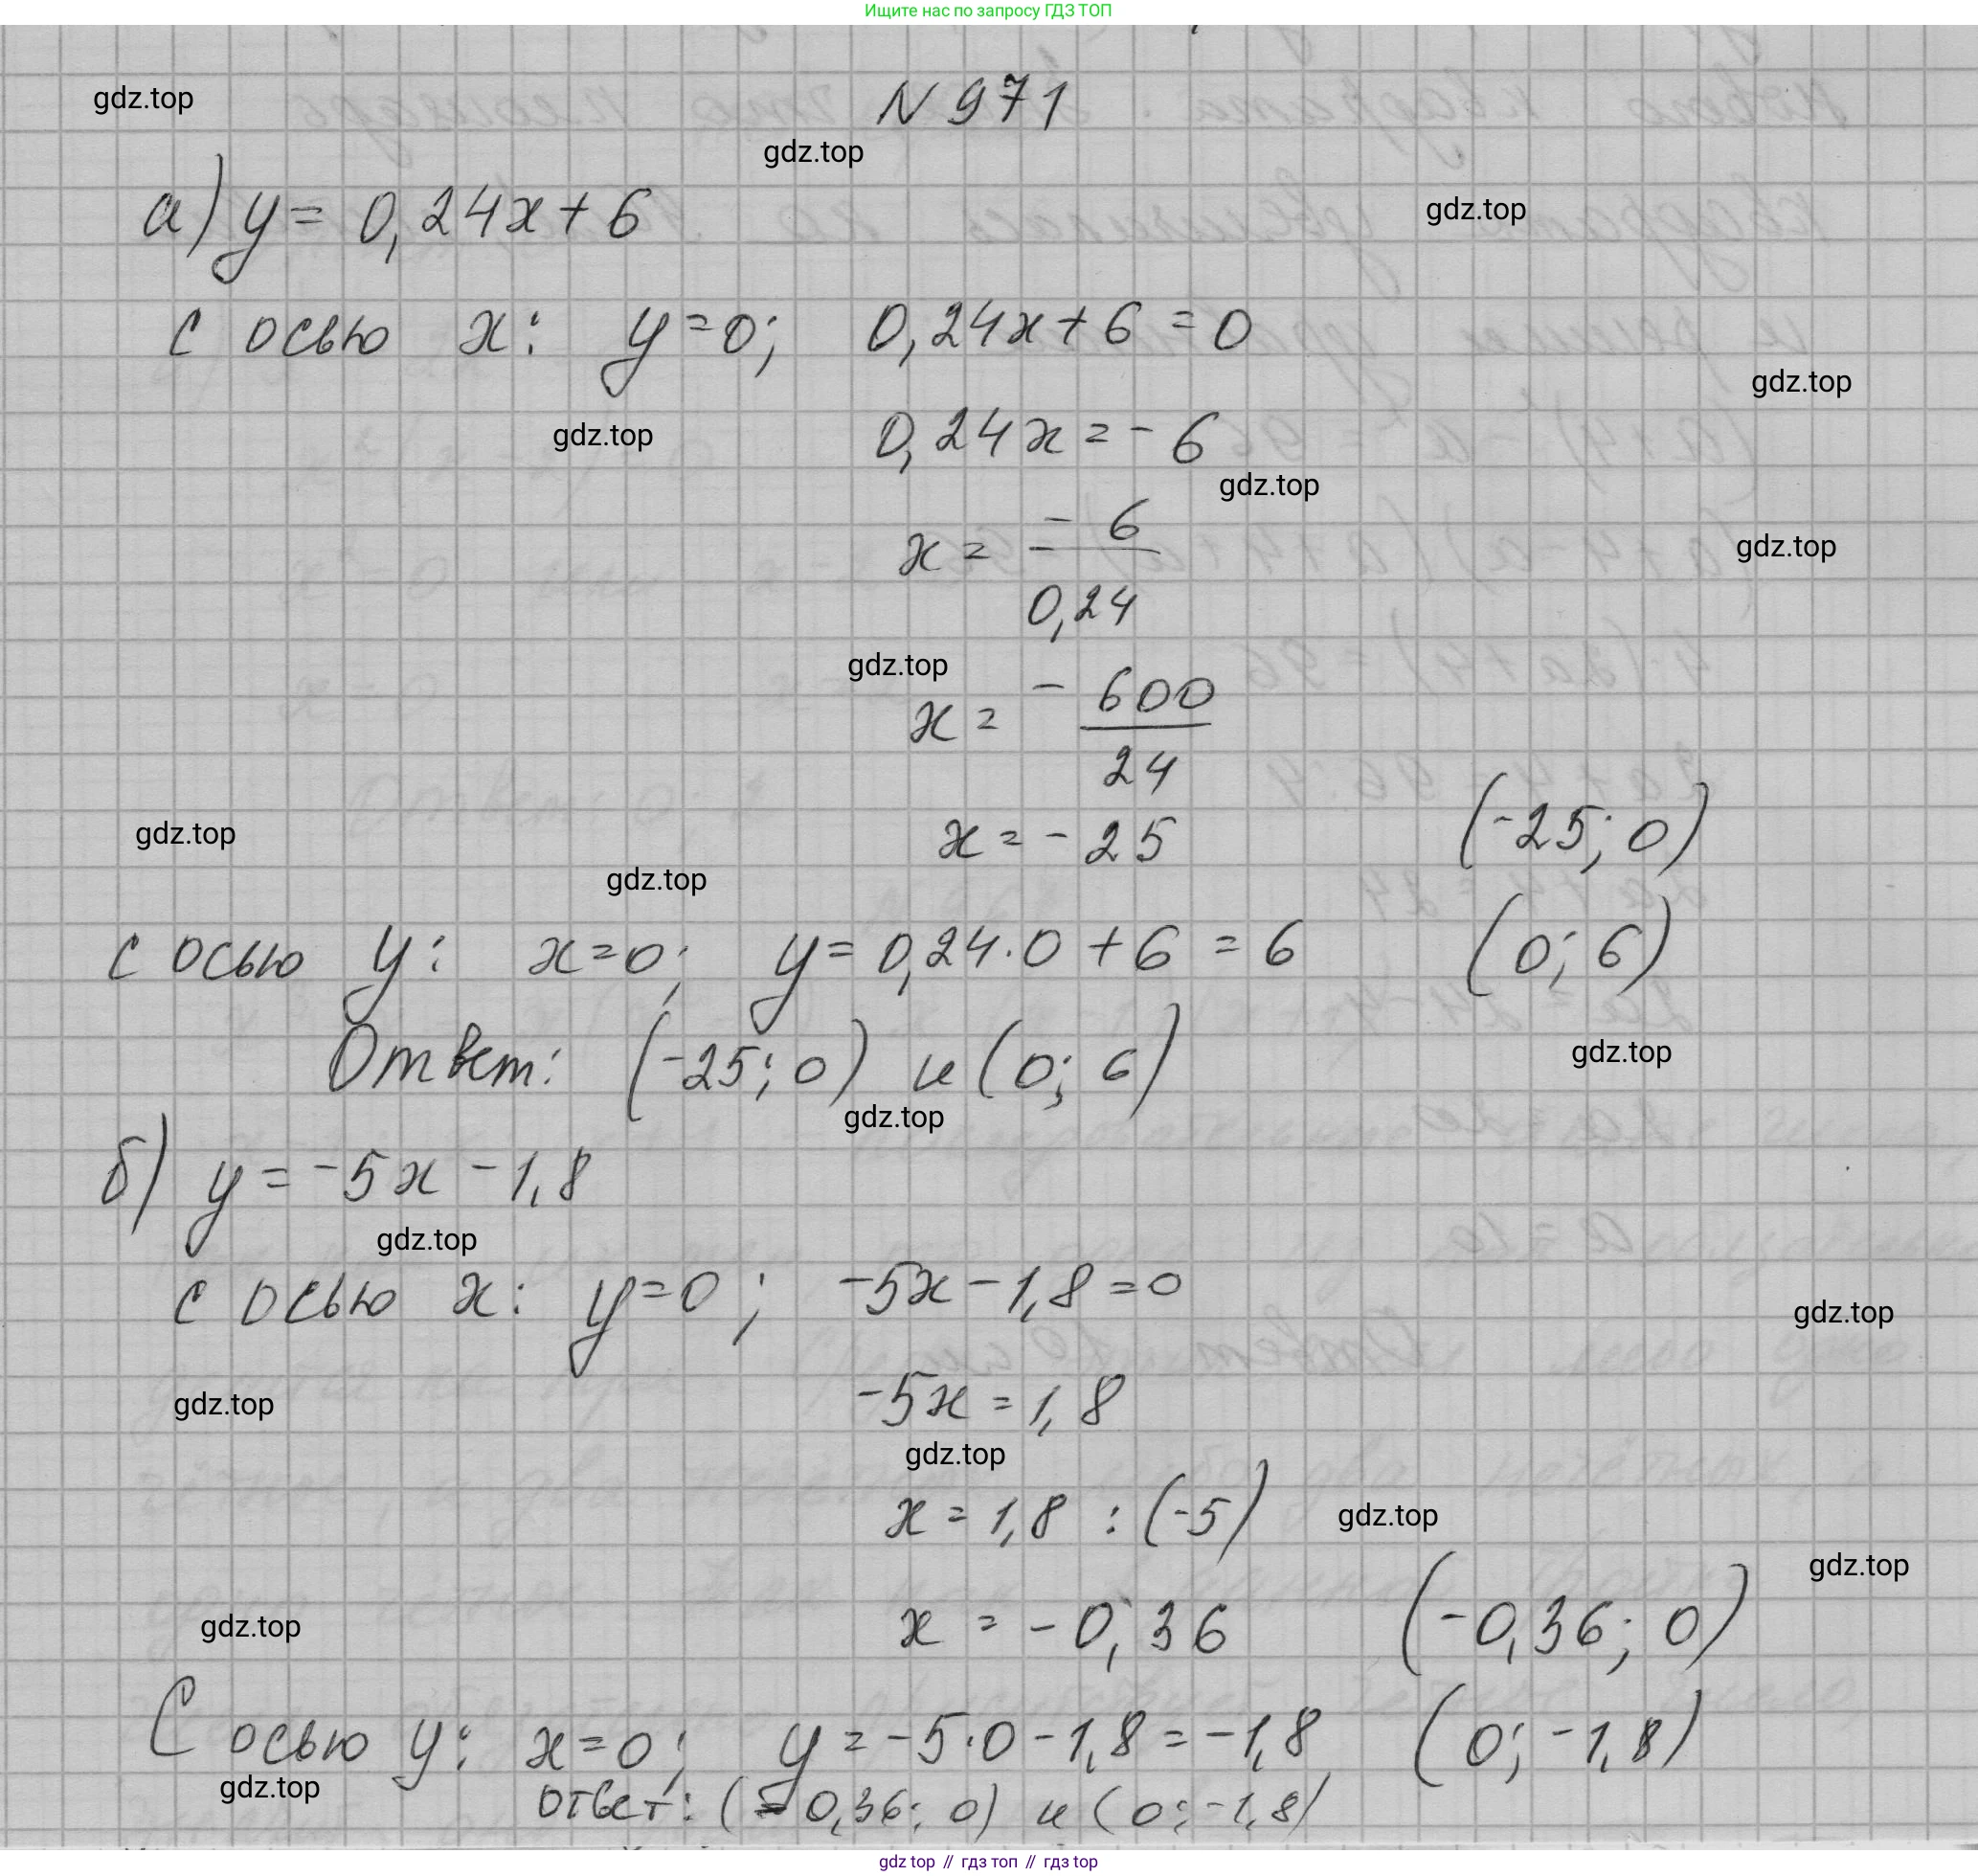 Ищите нас по запросу ГДЗ ТОП
N 971
gdz.top
gdz.top
а) y = 0,24x + 6
gdz.top
с осью x: y = 0; 0,24x + 6 = 0
gdz.top
0,24x = - 6
gdz.top
gdz.top
x = - 6 / 0,24
gdz.top
gdz.top
x = - 600 / 24
x = - 25 (-25; 0)
gdz.top
gdz.top
с осью y: x = 0; y = 0,24 · 0 + 6 = 6 (0; 6)
Ответ: (-25; 0) и (0; 6)
gdz.top
gdz.top
б) y = -5x - 1,8
gdz.top
с осью x: y = 0; -5x - 1,8 = 0
gdz.top
-5x = 1,8
gdz.top
gdz.top
x = 1,8 : (-5)
gdz.top
gdz.top
x = -0,36 (-0,36; 0)
gdz.top
С осью y: x = 0; y = -5 · 0 - 1,8 = -1,8 (0; -1,8)
gdz.top
ответ: (-0,36; 0) и (0; -1,8)
gdz top // гдз топ // гдз top